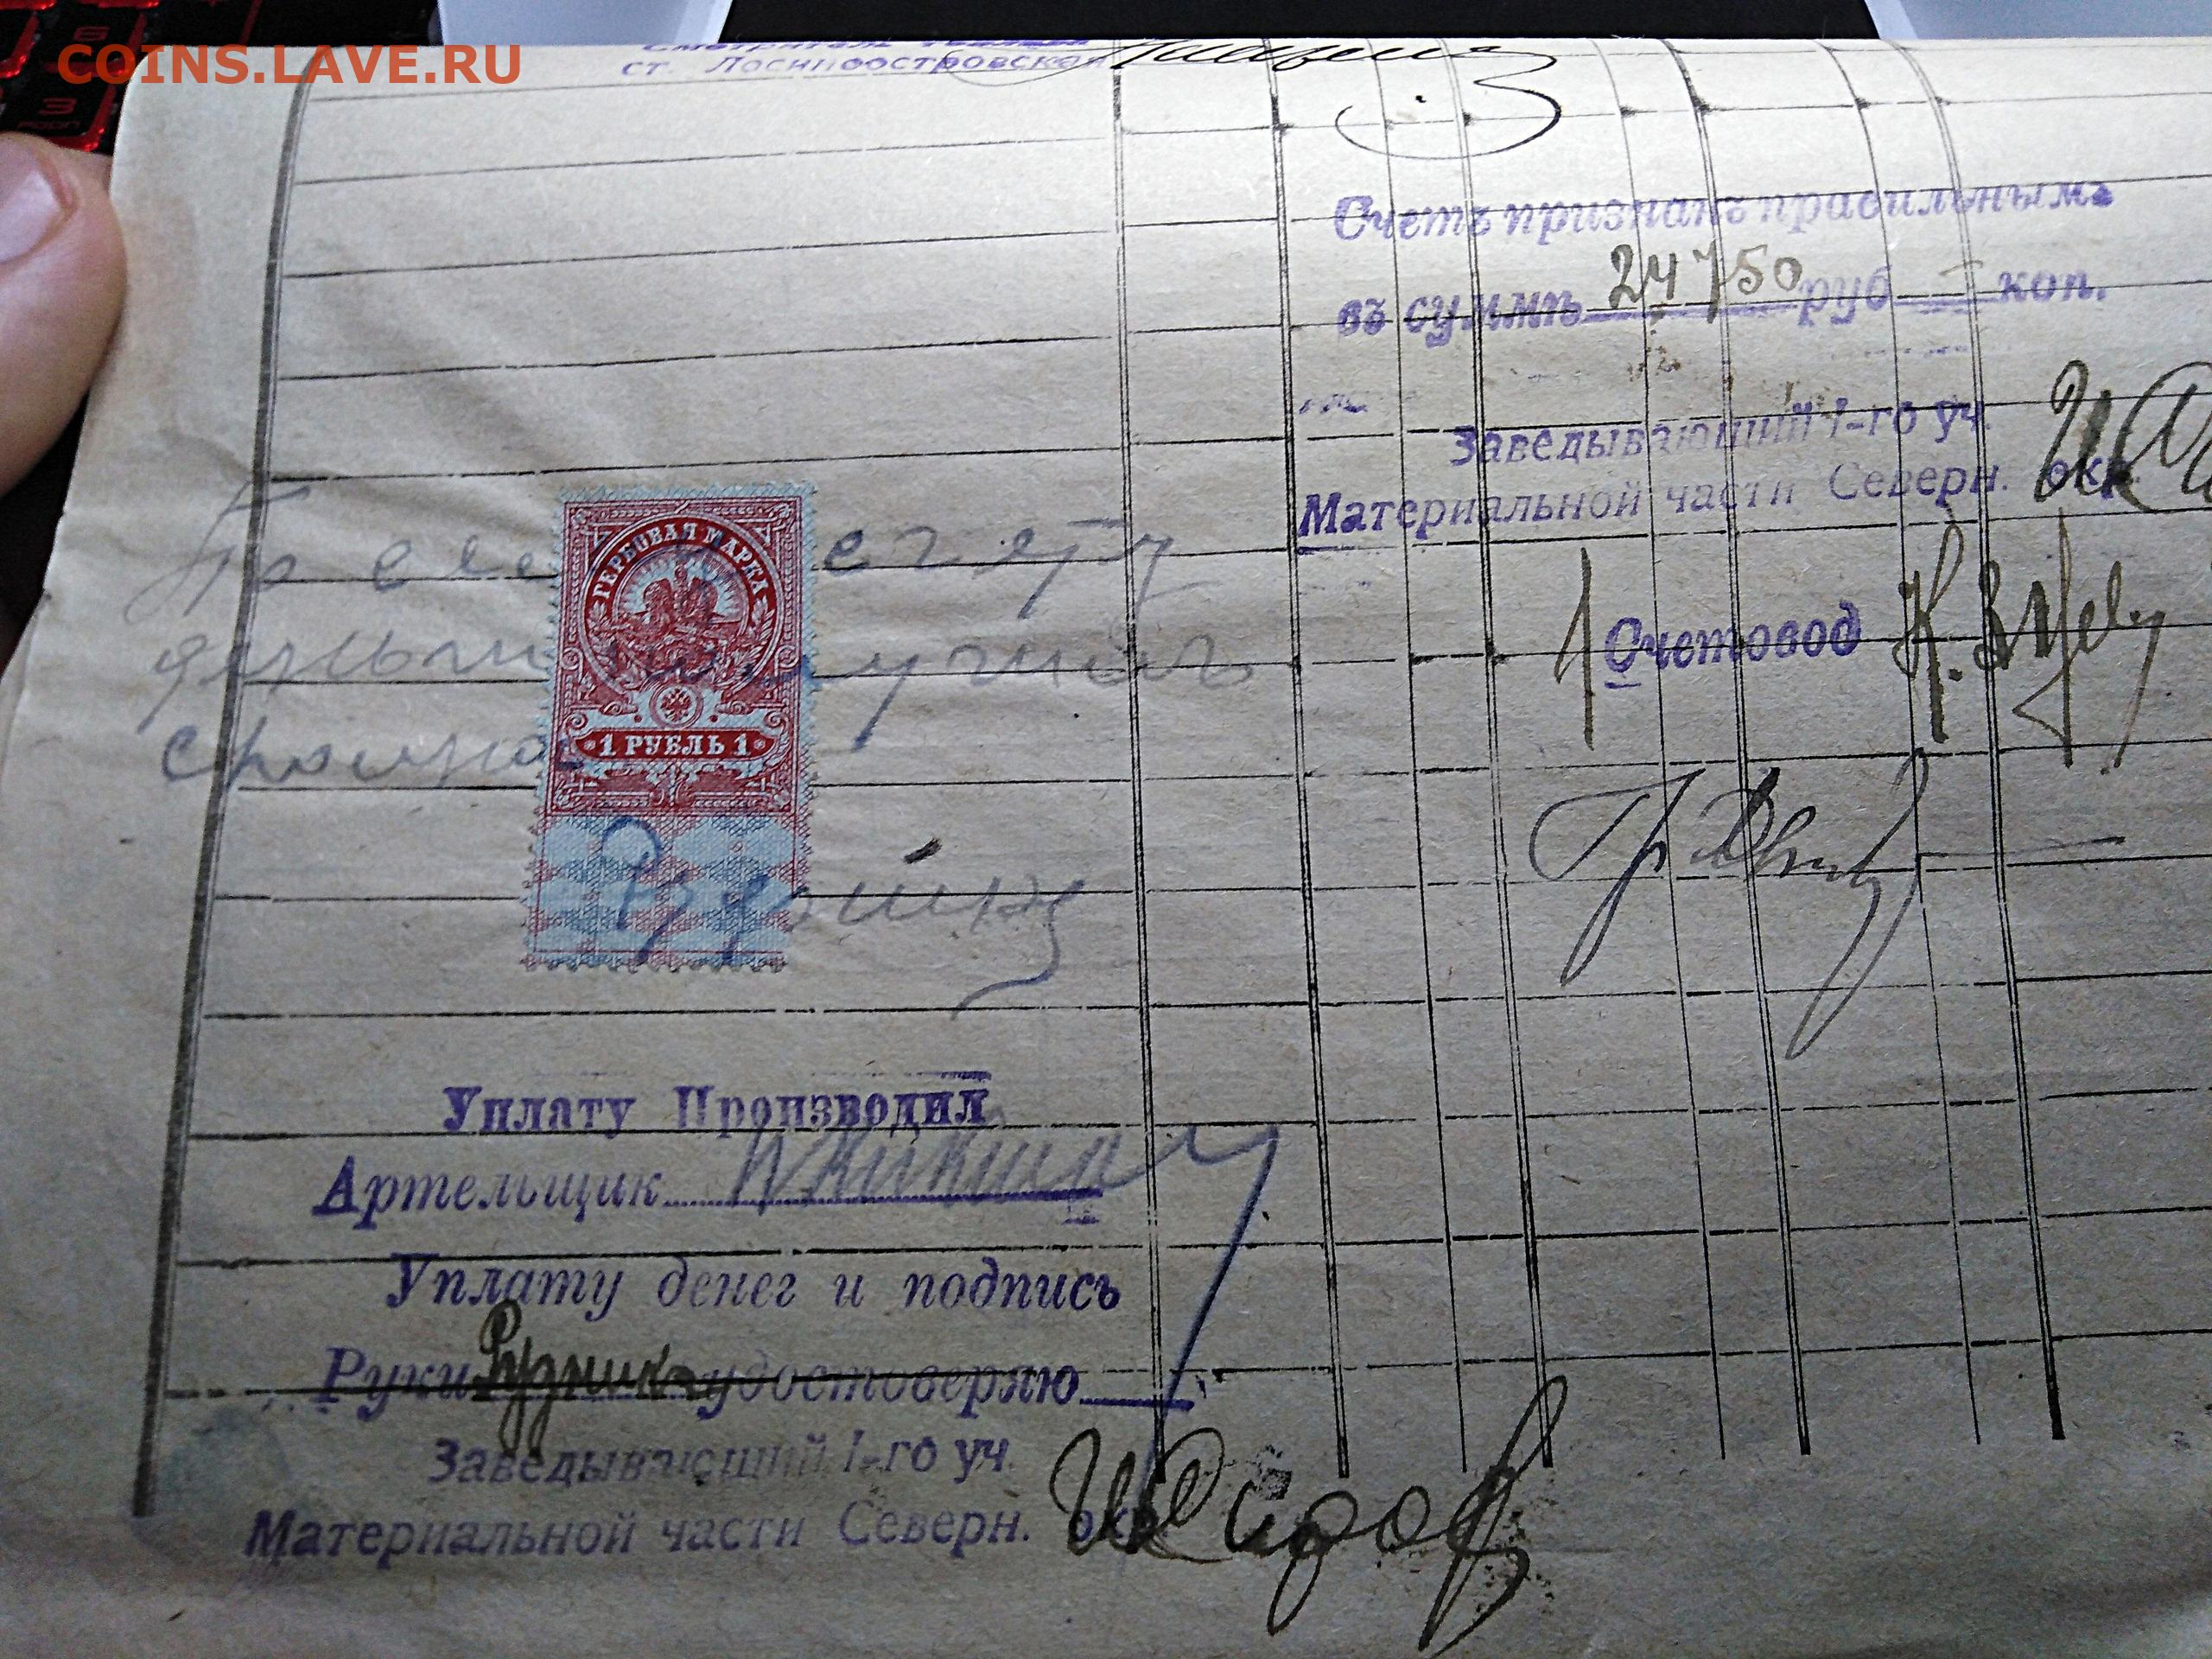 COINS.LAVE.RU
Смотритель
ст. Лосиноостровская
Счетъ признанъ правильнымъ
въ суммѣ 24750 руб — коп.
Заведывающий 1-го уч.
Материальной части Северн. окр.
Счетовод
По сему счету
деньги получилъ
сполна
ГЕРБОВАЯ МАРКА
1 РУБЛЬ 1
Уплату Производил
Артельщик
Уплату денег и подпись
Руки удостоверяю
Заведывающий 1-го уч.
Материальной части Северн. окр.